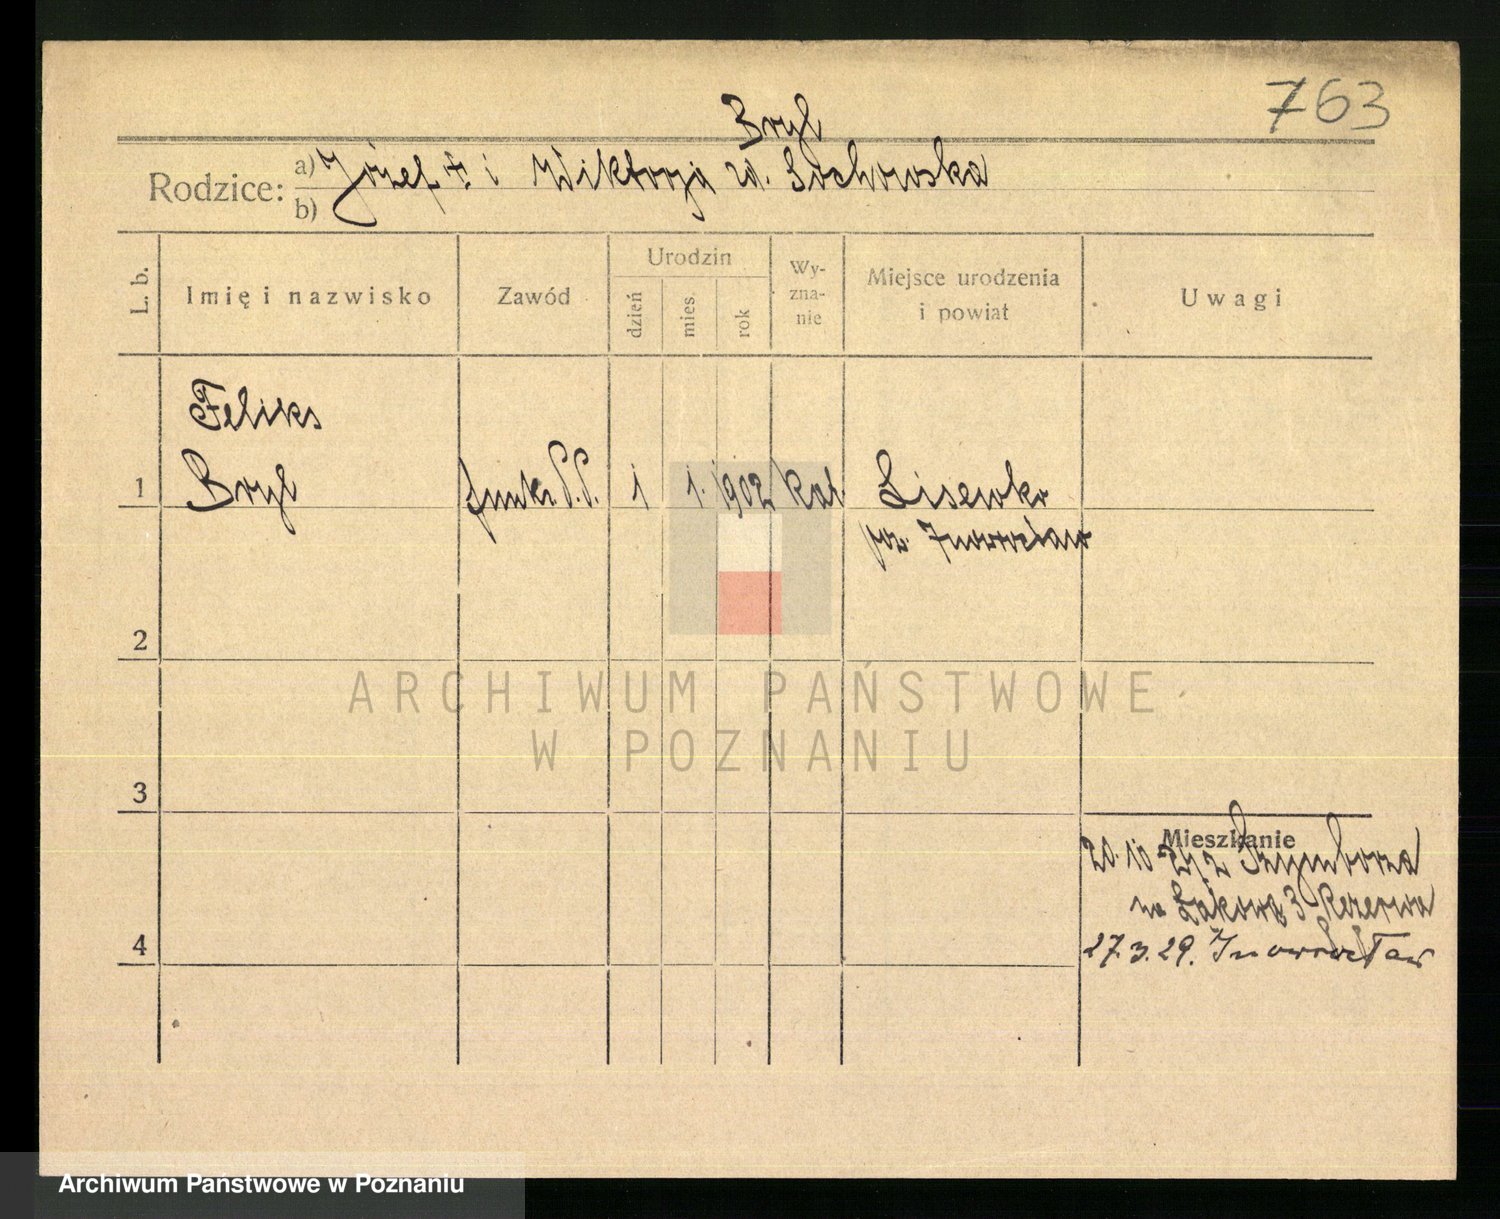 763
Bryl
Rodzice: a) Józef † i Wiktorja zd. Lochowska
b)
L. b.
Imię i nazwisko
Zawód
Urodzin
dzień
mies.
rok
Wy-
zna-
nie
Miejsce urodzenia
i powiat
Uwagi
Feliks
1 Bryl funkc. P.P. 1 1. 1902 kat Lisewko
pow. Inowrocław
2
3
4
Mieszkanie
20. 10 Szymborza
na Łąkową 3 Rezerwa
27.3.29. Inowrocław
ARCHIWUM PAŃSTWOWE
W POZNANIU
Archiwum Państwowe w Poznaniu